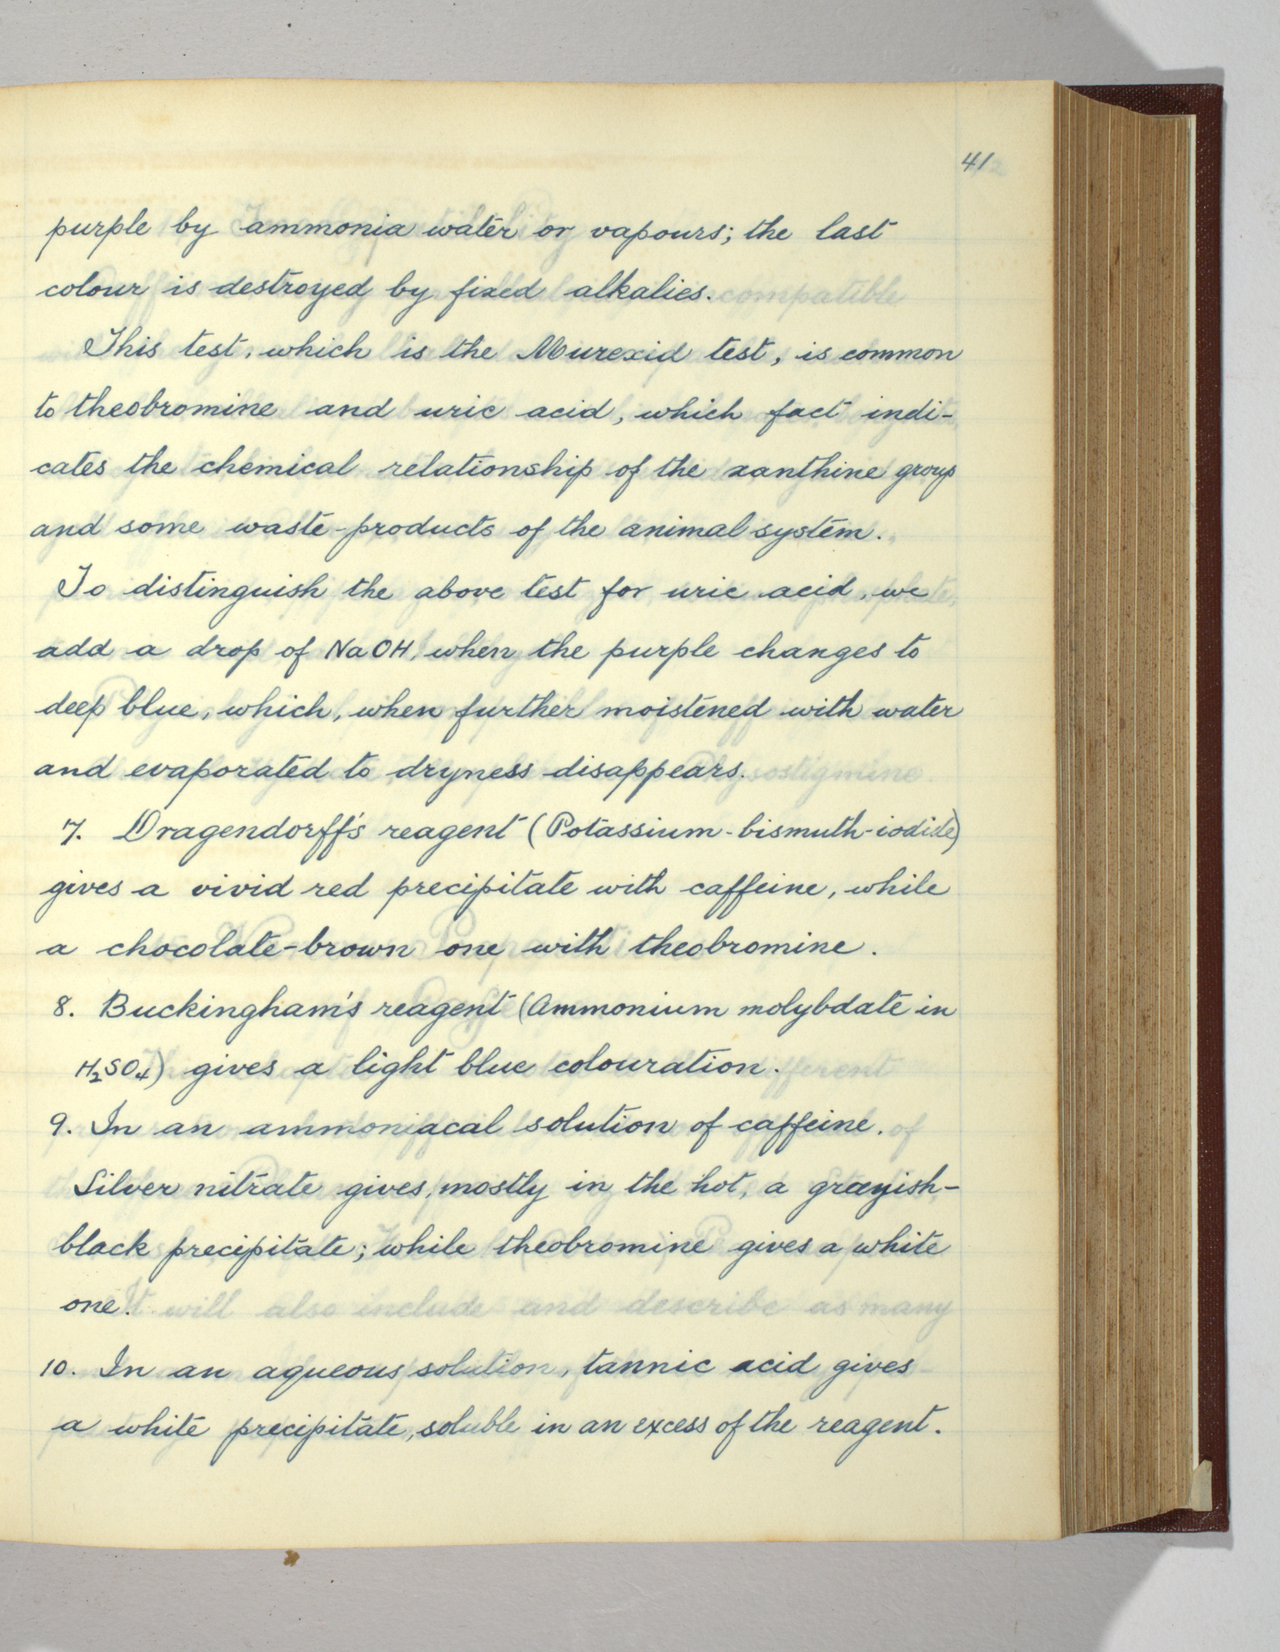 41
purple by ammonia water or vapours; the last
colour is destroyed by fixed alkalies.
This test, which is the Murexid test, is common
to theobromine and uric acid, which fact indi-
cates the chemical relationship of the xanthine group
and some waste-products of the animal system.
To distinguish the above test for uric acid, we
add a drop of NaOH, when the purple changes to
deep blue, which, when further moistened with water
and evaporated to dryness disappears.
7. Dragendorff's reagent (Potassium-bismuth-iodide)
gives a vivid red precipitate with caffeine, while
a chocolate-brown one with theobromine.
8. Buckingham's reagent (Ammonium molybdate in
H₂SO₄) gives a light blue colouration.
9. In an ammoniacal solution of caffeine.
Silver nitrate gives, mostly in the hot, a greyish-
black precipitate; while theobromine gives a white
one.
10. In an aqueous solution, tannic acid gives
a white precipitate, soluble in an excess of the reagent.